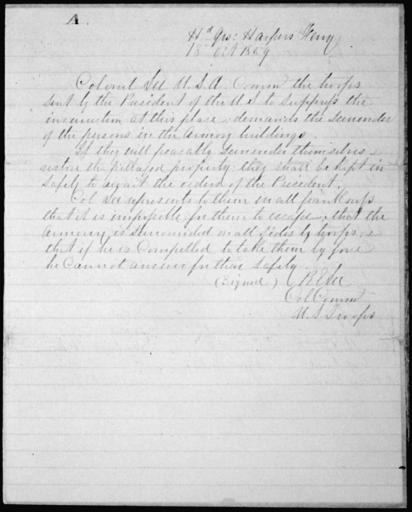 A
Hd Qrs: Harpers Ferry
18 Oct 1859
Colonel Lee U.S.A. Comm the troops
sent by the President of the U.S. to suppress the
insurrection at this place demands the surrender
of the persons in the armory buildings.
If they will peacably surrender themselves &
restore the pillaged property, they shall be kept in
safety to await the orders of the President.
Col Lee represents to them in all frankness
that it is impossible for them to escape, that the
armory is surrounded on all sides by troops, &
that if he is compelled to take them by force
he cannot answer for their safety
(Signed) R E Lee
Col Comm
U.S Troops